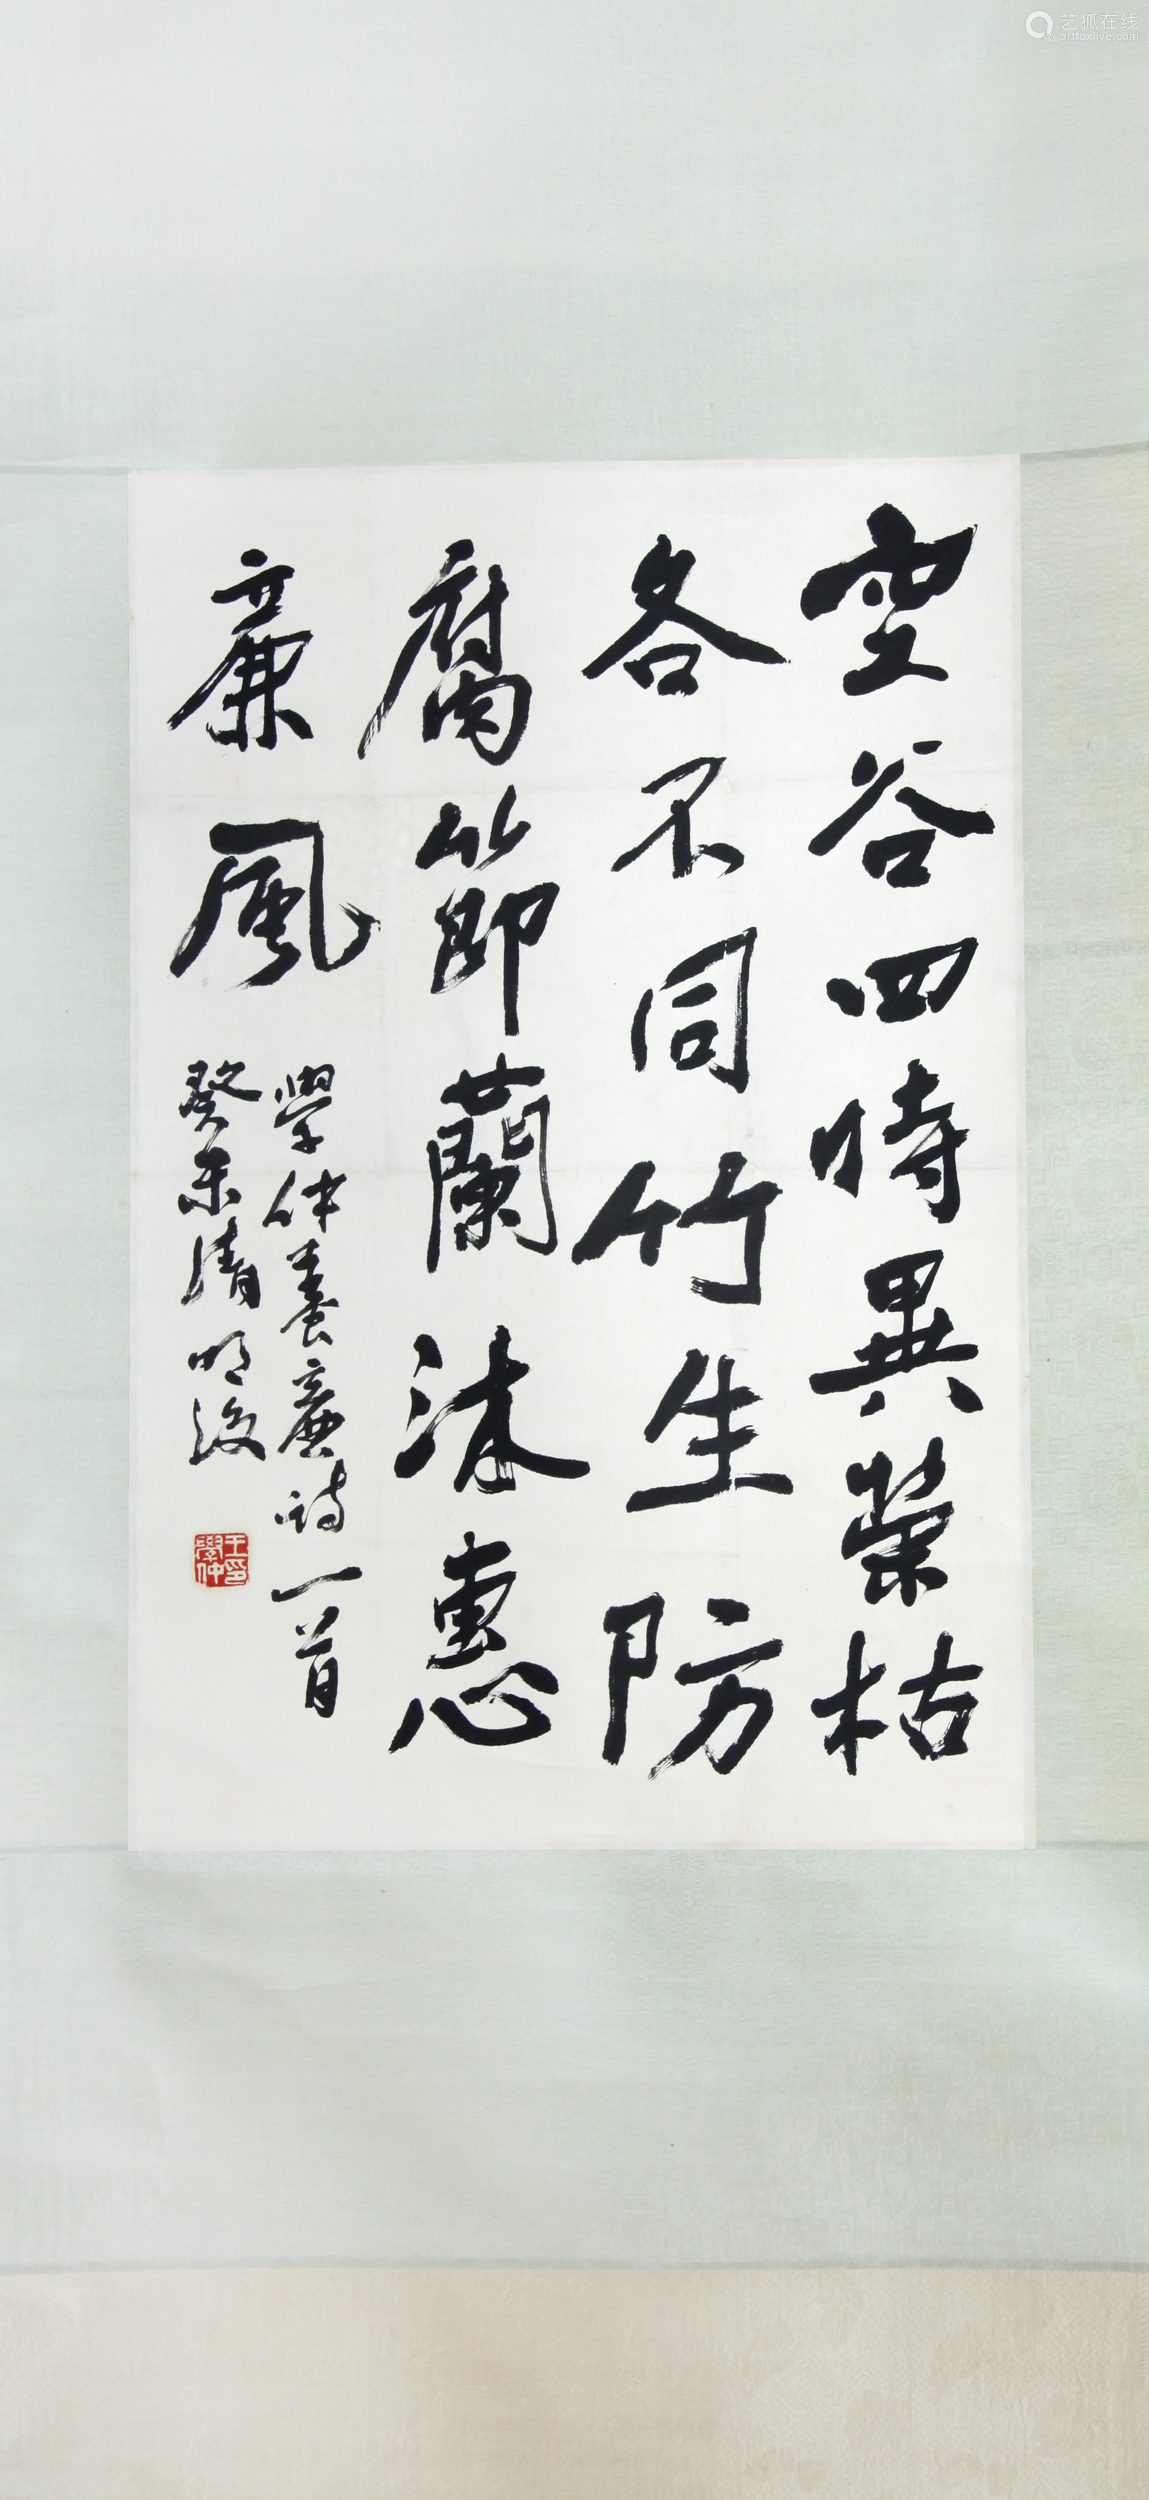 空谷四時異榮枯
各不同竹生防
腐節蘭沐惠
廉風
學仲養廉詩一首
癸未清明後
王學仲印
艺狐在线
artfoxlive.com